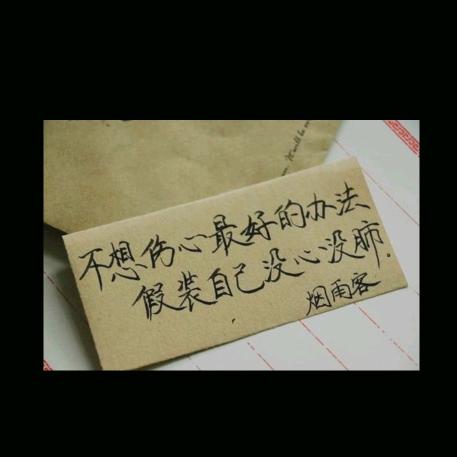 不想伤心最好的办法
假装自己没心没肺.
烟雨客